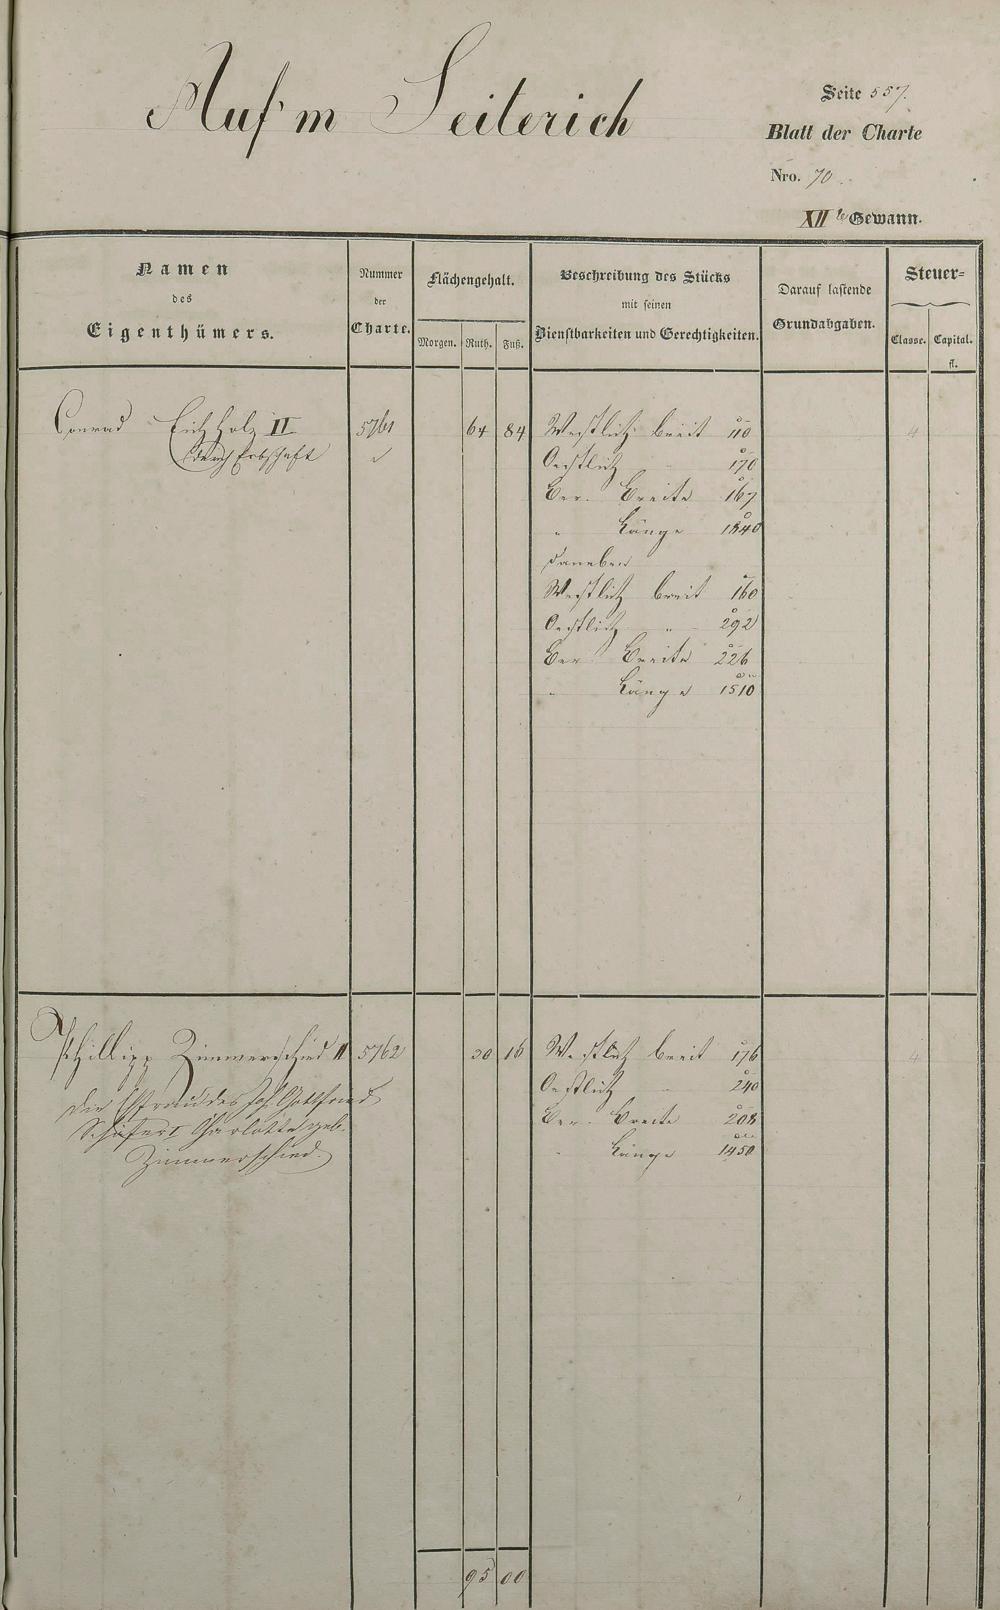 Auf'm Seiterich
Seite 557.
Blatt der Charte
Nro. 70.
XIIte Gewann.
Namen
des
Eigenthümers.
Nummer
der
Charte.
Flächengehalt.
Morgen. Ruth. Fuß.
Beschreibung des Stücks
mit seinen
Dienstbarkeiten und Gerechtigkeiten.
Darauf lastende
Grundabgaben.
Steuer-
Classe. Capital.
fl.
Conrad Eichholz II 5761 64 84 Westlich breit 110 4
durch Erbschaft
Oestlich " 170
Ber. Breite 167
" Länge 1840
daneben
Westlich breit 160
Oestlich " 292
Ber. Breite 226
" Länge 1510
Phillipp Zimmerschied II 5762 30 16 Westlich breit 176 4
Die Ehefrau des Joh. Gottfried
Schäfer I Charlotte geb.
Zimmerschied.
Oestlich " 240
Ber. Breite 208
" Länge 1450
95 00